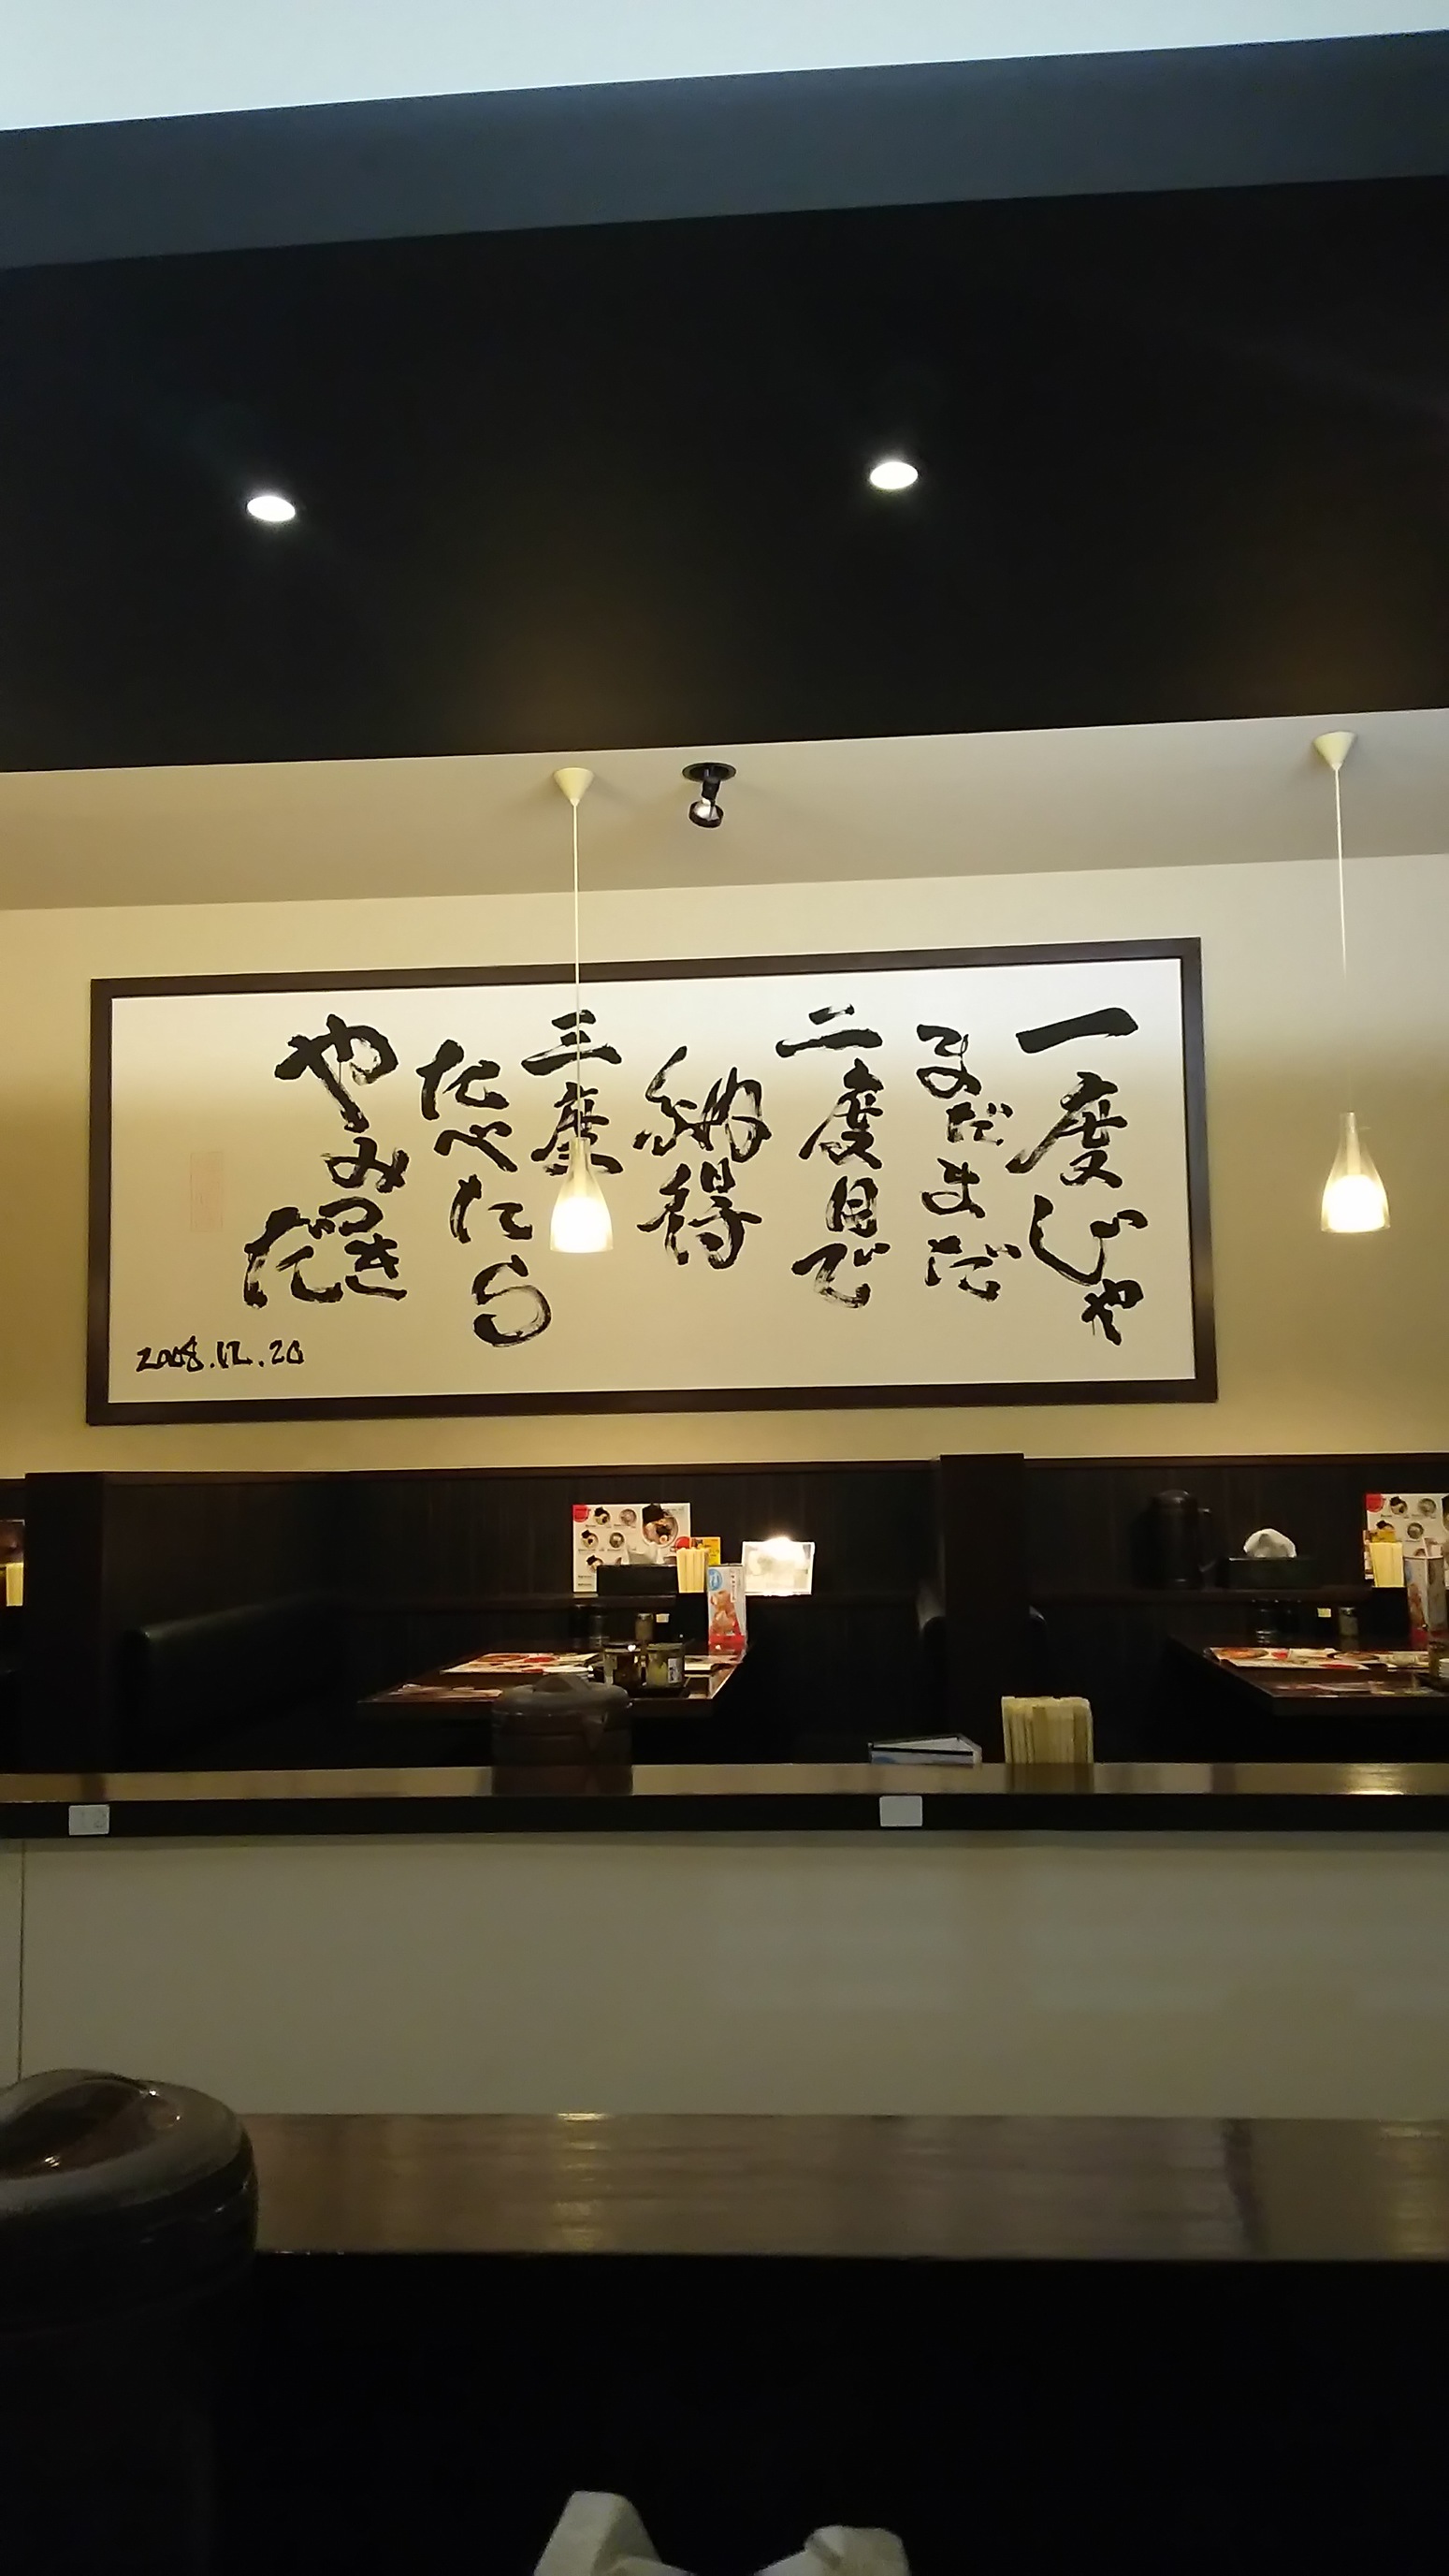 一度じゃ
まだまだ
二度目で
納得
三度
たべたら
やみつき
だ
2008.12.20